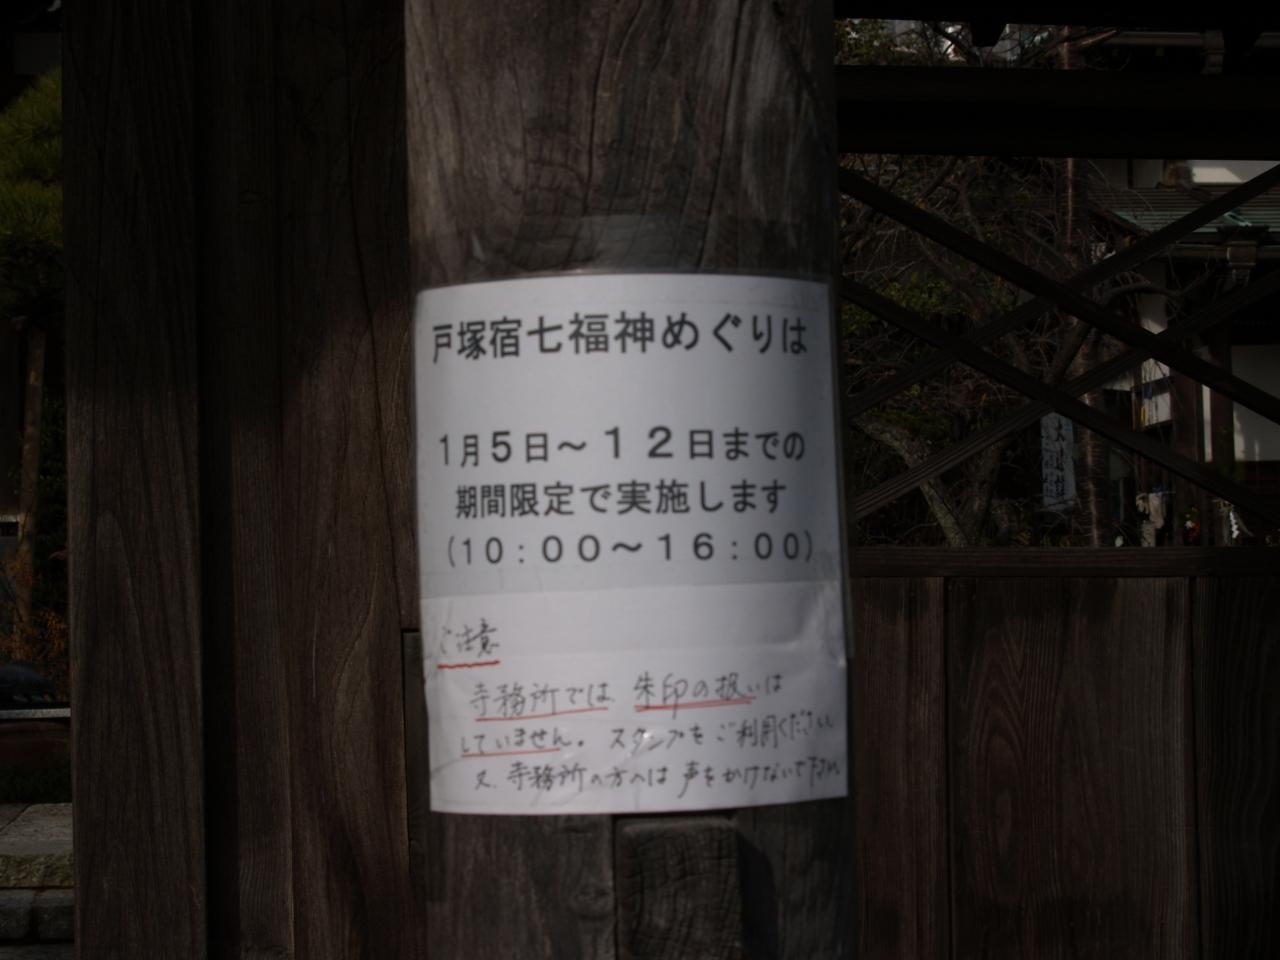 戸塚宿七福神めぐりは
1月5日～12日までの
期間限定で実施します
(10:00～16:00)
ご注意
寺務所では、朱印の扱いは
していません。スタンプをご利用ください
又、寺務所の方へは声をかけないで下さい